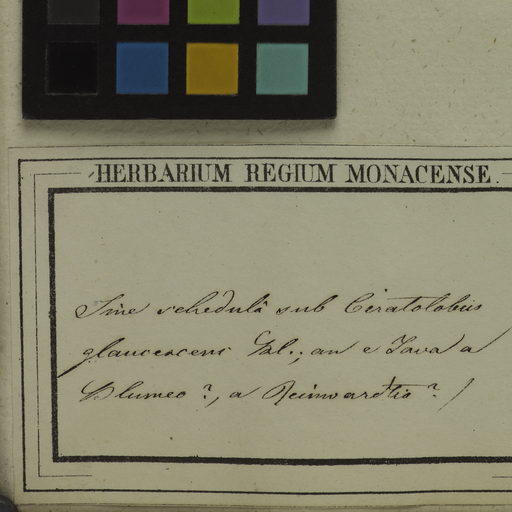 HERBARIUM REGIUM MONACENSE.
Sine schedulâ sub Ceratolobus
glaucescens Bl.; an e Java a
Blumeo?, a Reinwardtio? /